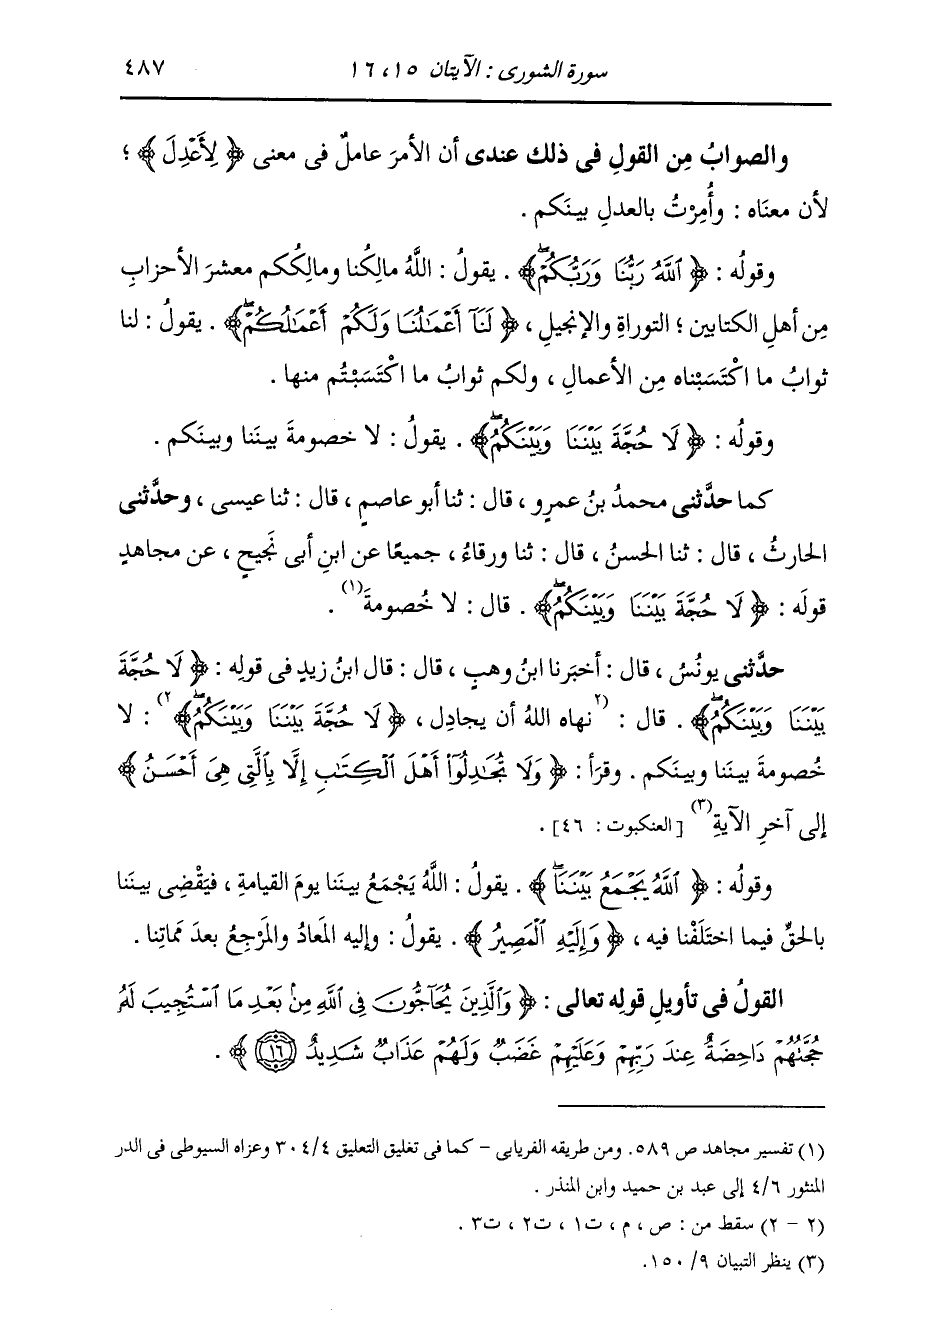 سورة الشورى : الآيتان ١٥ ، ١٦ ٤٨٧
والصوابُ مِن القولِ فى ذلك عندى أن الأمرَ عاملٌ فى معنى ﴿ لِأَعْدِلَ ﴾ ؛
لأن معنَاه : وأُمِرْتُ بالعدلِ بينَكم .
وقولُه : ﴿ ٱللَّهُ رَبُّنَا وَرَبُّكُمْۖ ﴾ . يقولُ : اللَّهُ مالِكُنا ومالِكُكم معشرَ الأحزابِ
مِن أهلِ الكتابين ؛ التوراةِ والإنجيلِ ، ﴿ لَنَآ أَعْمَٰلُنَا وَلَكُمْ أَعْمَٰلُكُمْۖ ﴾ . يقولُ : لنا
ثوابُ ما اكْتَسَبْناه مِن الأعمالِ ، ولكم ثوابُ ما اكْتَسَبْتُم منها .
وقولُه : ﴿ لَا حُجَّةَ بَيْنَنَا وَبَيْنَكُمُۖ ﴾ . يقولُ : لا خصومةَ بينَنا وبينَكم .
كما حدَّثنى محمدُ بنُ عمرٍو ، قال : ثنا أبو عاصمٍ ، قال : ثنا عيسى ، وحدَّثنى
الحارثُ ، قال : ثنا الحسنُ ، قال : ثنا ورقاءُ ، جميعًا عن ابنِ أبى نَجيحٍ ، عن مجاهدٍ
قولَه : ﴿ لَا حُجَّةَ بَيْنَنَا وَبَيْنَكُمُۖ ﴾ . قال : لا خُصومةَ (١) .
حدَّثنى يونُسُ ، قال : أخبَرنا ابنُ وهبٍ ، قال : قال ابنُ زيدٍ فى قولِه : ﴿ لَا حُجَّةَ
بَيْنَنَا وَبَيْنَكُمُۖ ﴾ . قال : (٢ نهاه اللهُ أن يجادِل ، ﴿ لَا حُجَّةَ بَيْنَنَا وَبَيْنَكُمُۖ ﴾ ٢) : لا
خُصومةَ بينَنا وبينَكم . وقرَأ : ﴿ وَلَا تُجَٰدِلُوٓا۟ أَهْلَ ٱلْكِتَٰبِ إِلَّا بِٱلَّتِى هِىَ أَحْسَنُ ﴾
إلى آخرِ الآيةِ (٣) [ العنكبوت : ٤٦] .
وقولُه : ﴿ ٱللَّهُ يَجْمَعُ بَيْنَنَاۖ ﴾ . يقولُ : اللَّهُ يَجْمَعُ بينَنا يومَ القيامةِ ، فيَقْضِى بيننا
بالحقِّ فيما اختَلَفْنا فيه ، ﴿ وَإِلَيْهِ ٱلْمَصِيرُ ﴾ . يقولُ : وإليه المَعادُ والمَرْجِعُ بعدَ مَماتِنا .
القولُ فى تأويلِ قولِه تعالى : ﴿ وَٱلَّذِينَ يُحَآجُّونَ فِى ٱللَّهِ مِنۢ بَعْدِ مَا ٱسْتُجِيبَ لَهُۥ
حُجَّتُهُمْ دَاحِضَةٌ عِندَ رَبِّهِمْ وَعَلَيْهِمْ غَضَبٌ وَلَهُمْ عَذَابٌ شَدِيدٌ ١٦ ﴾ .
(١) تفسير مجاهد ص ٥٨٩. ومن طريقه الفريابى - كما فى تغليق التعليق ٣٠٤/٤ وعزاه السيوطى فى الدر
المنثور ٤/٦ إلى عبد بن حميد وابن المنذر .
(٢ - ٢) سقط من : ص ، م ، ت١ ، ت٢ ، ت٣ .
(٣) ينظر التبيان ٩/ ١٥٠.